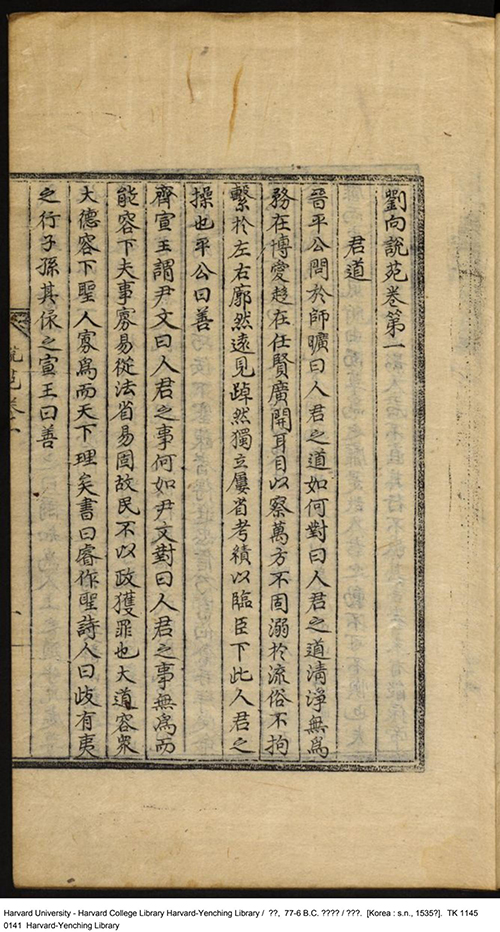 劉向說苑卷第一
君道
晉平公問於師曠曰人君之道如何對曰人君之道淸淨無爲
務在博愛趍在任賢廣開耳目以察萬方不固溺於流俗不拘
繫於左右廓然遠見踔然獨立屢省考積以臨臣下此人君之
操也平公曰善
齊宣王謂尹文曰人君之事何如尹文對曰人君之事無爲而
能容下夫事寡易從法省易因故民不以政獲罪也大道容衆
大德容下聖人寡爲而天下理矣書曰睿作聖詩人曰歧有夷
之行子孫其保之宣王曰善
Harvard University - Harvard College Library Harvard-Yenching Library / ??, 77-6 B.C. ???? / ???. [Korea : s.n., 1535?]. TK 1145
0141 Harvard-Yenching Library